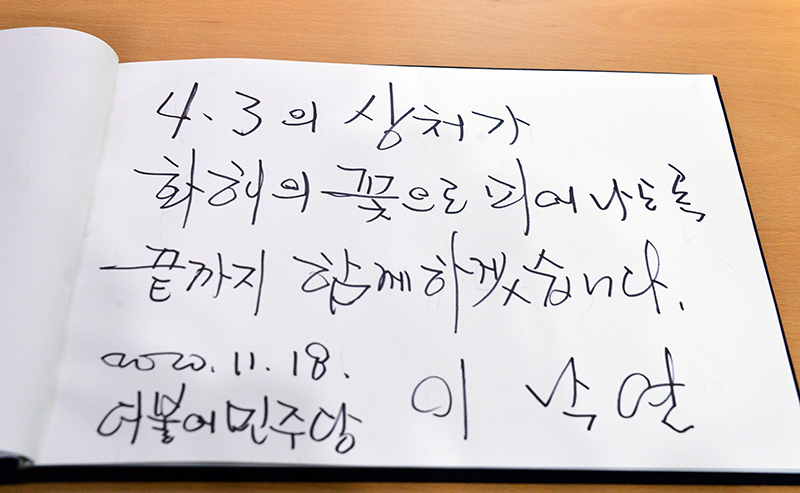 4.3의 상처가
화해의 꽃으로 피어나도록
끝까지 함께하겠습니다.
2020. 11. 18.
더불어민주당 이낙연